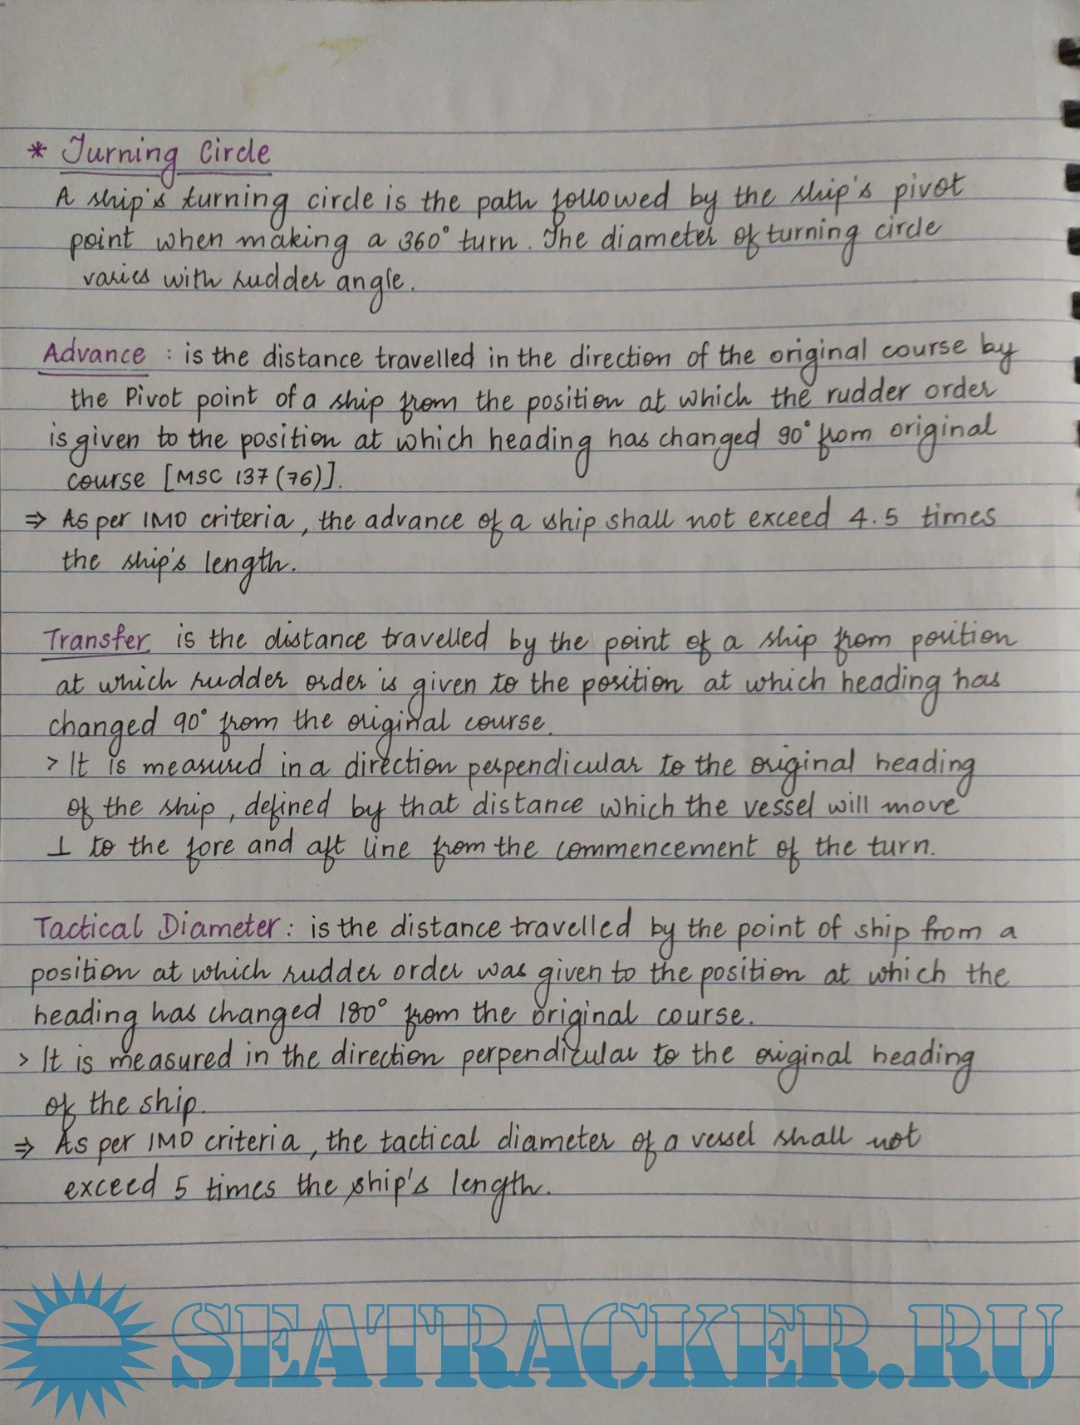 * Turning Circle
A ship's turning circle is the path followed by the ship's pivot
point when making a 360° turn. The diameter of turning circle
varies with rudder angle.
Advance : is the distance travelled in the direction of the original course by
the Pivot point of a ship from the position at which the rudder order
is given to the position at which heading has changed 90° from original
course [MSC 137 (76)].
⇒ As per IMO criteria, the advance of a ship shall not exceed 4.5 times
the ship's length.
Transfer is the distance travelled by the point of a ship from position
at which rudder order is given to the position at which heading has
changed 90° from the original course.
> It is measured in a direction perpendicular to the original heading
of the ship, defined by that distance which the vessel will move
⊥ to the fore and aft line from the commencement of the turn.
Tactical Diameter : is the distance travelled by the point of ship from a
position at which rudder order was given to the position at which the
heading has changed 180° from the original course.
> It is measured in the direction perpendicular to the original heading
of the ship.
⇒ As per IMO criteria, the tactical diameter of a vessel shall not
exceed 5 times the ship's length.
SEATRACKER.RU